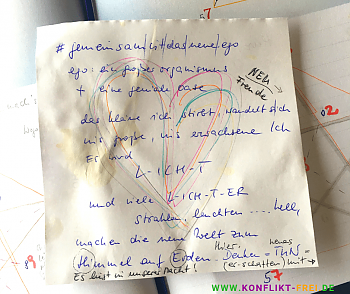 57
# gemeinsam/ist/das/neue/ego
ego: ein großer organismus
+ eine geniale oase
NEU →
Freude
das kleine ich stirbt, wandelt sich
ins große, ins erwachsene Ich
Es wird
L-ICH-T
und viele L-ICH-T-ER
strahlen, leuchten .... hell,
machen die neue Welt zum
Himmel auf Erden.
hier.
Denken = TUN =
(er-schaffen) mit →
Es liegt in unserer Macht!
02
57
WWW.KONFLIKT-FREI.DE